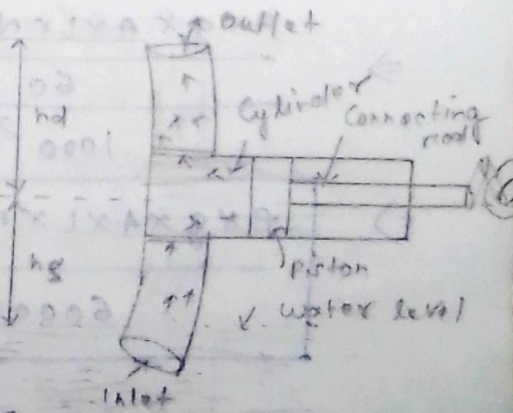 outlet
hd
Cylinder
Connecting
rod
piston
hs
water level
Inlet